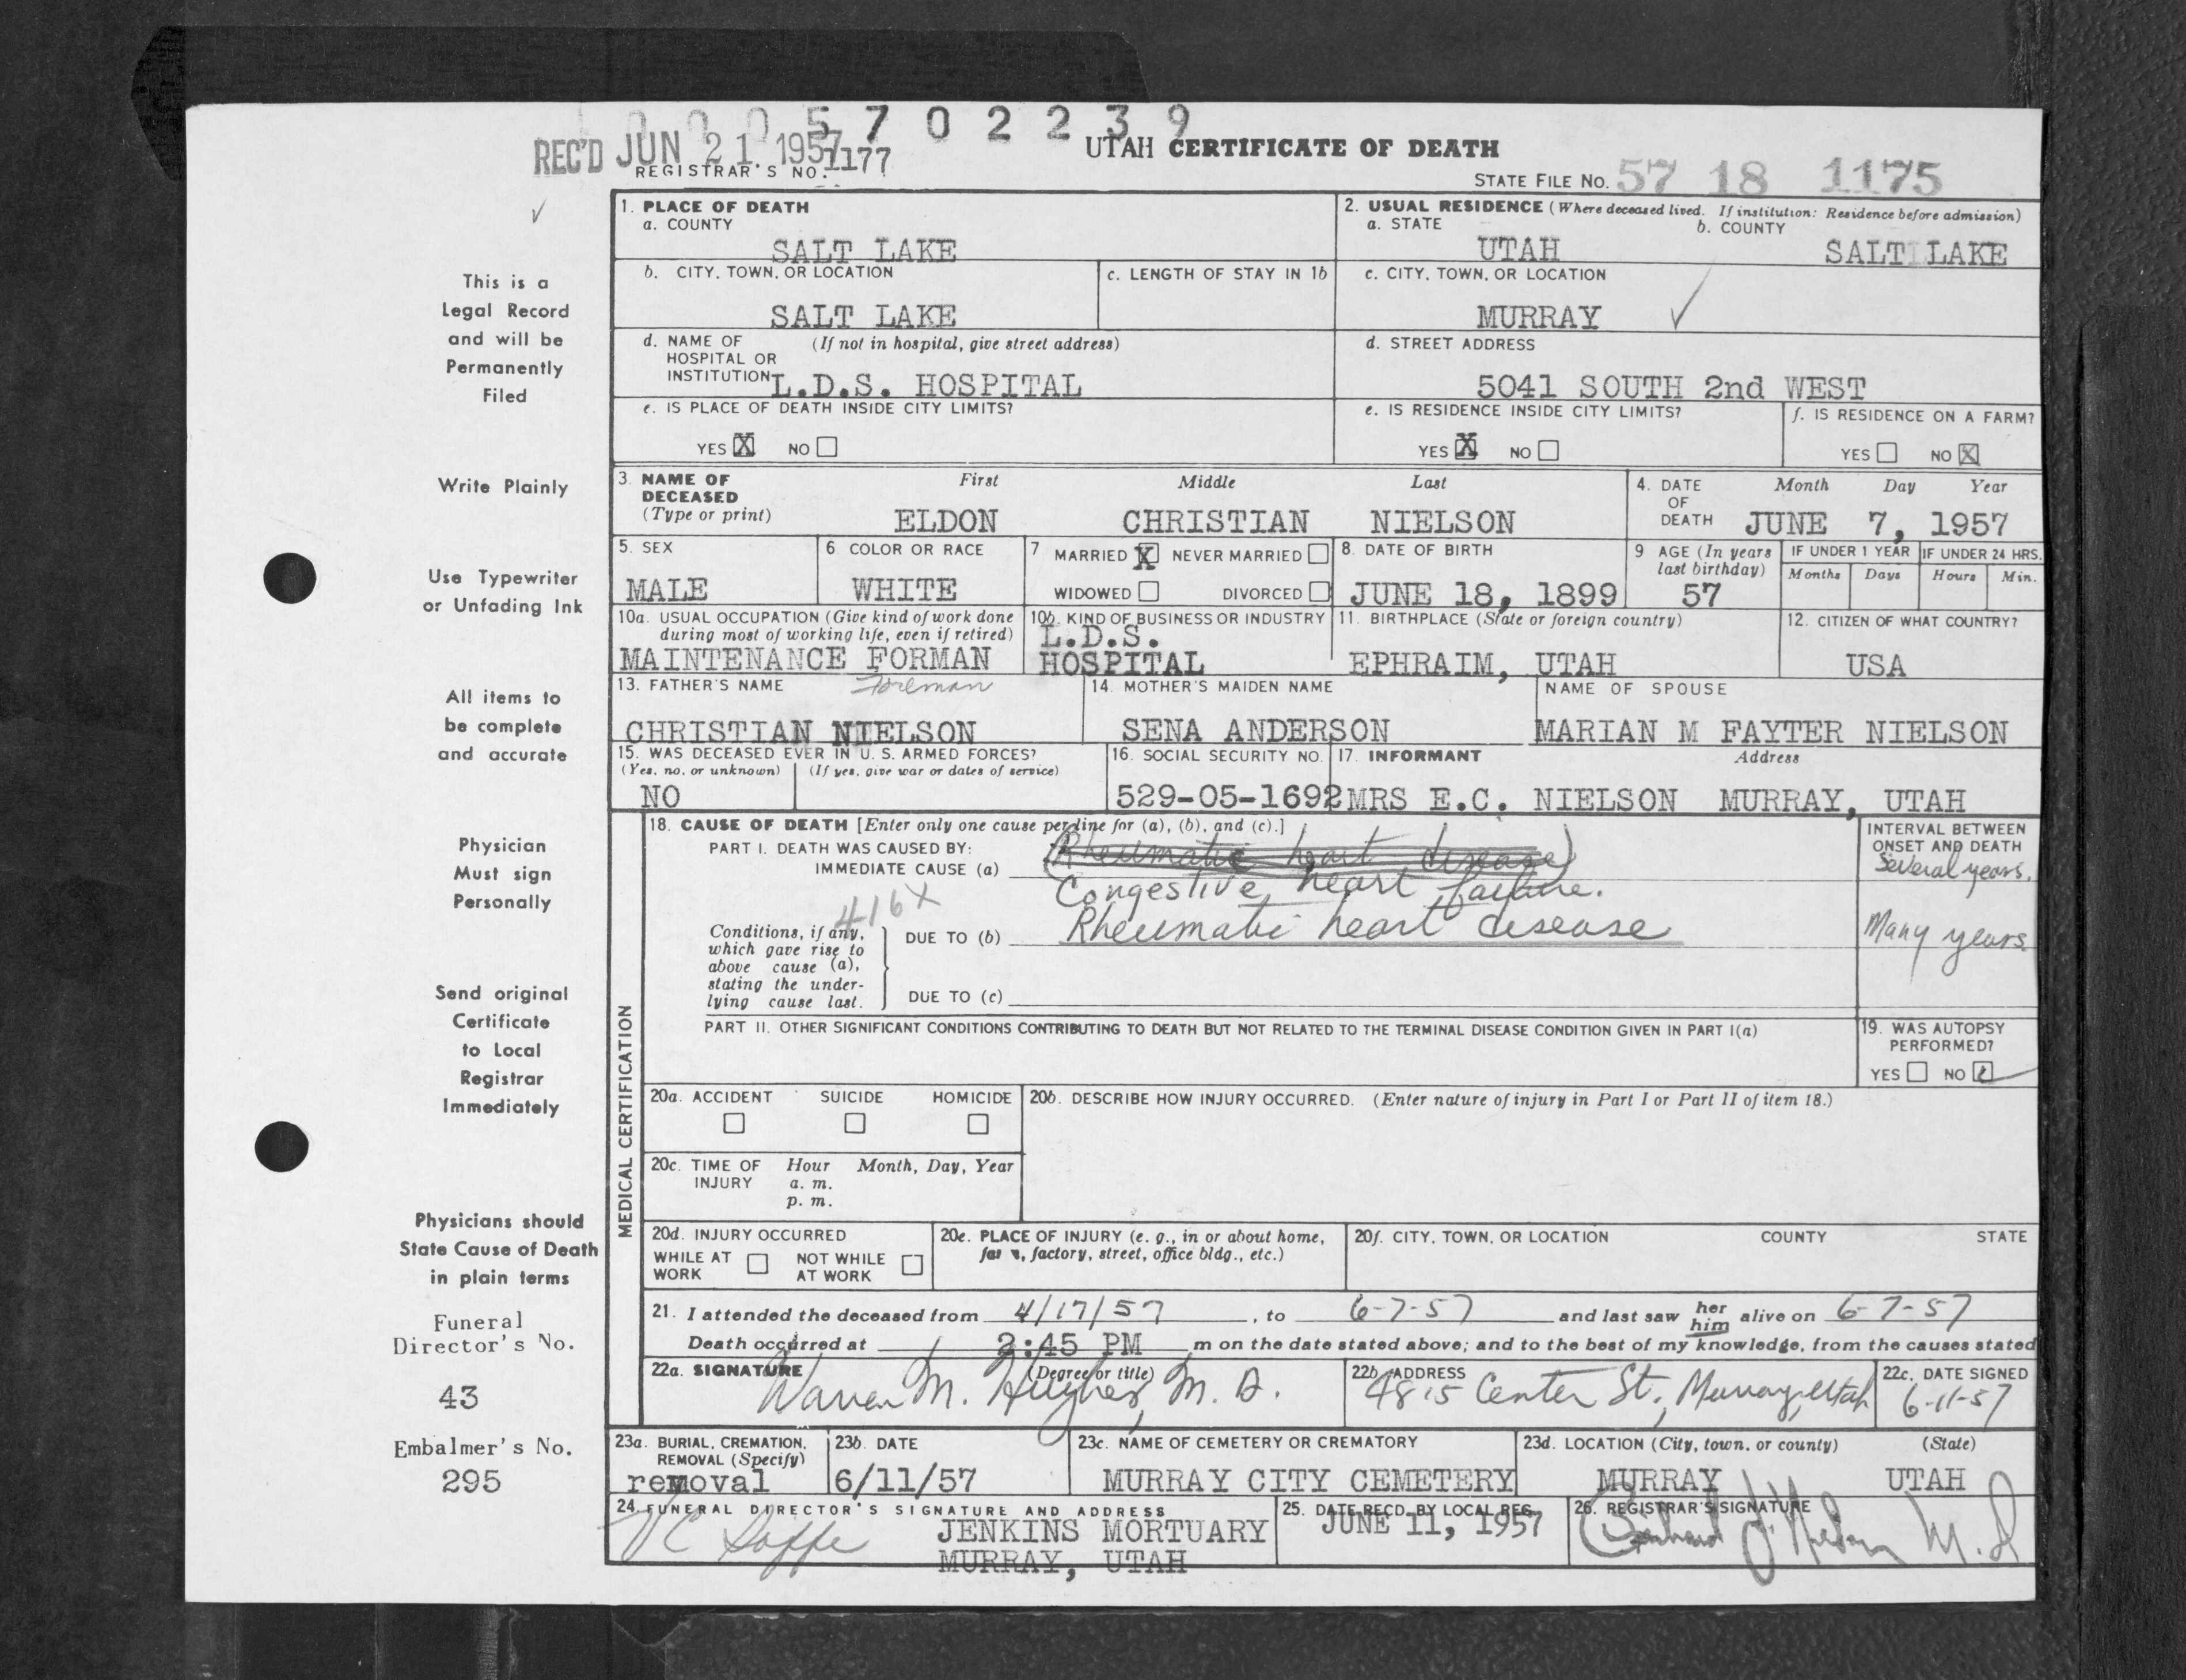 0 0 0 5 7 0 2 2 3 9
REC'D JUN 21 1957
REGISTRAR'S NO. 1177
UTAH CERTIFICATE OF DEATH
STATE FILE NO. 57 18 1175
This is a
Legal Record
and will be
Permanently
Filed
Write Plainly
Use Typewriter
or Unfading Ink
All items to
be complete
and accurate
Physician
Must sign
Personally
Send original
Certificate
to Local
Registrar
Immediately
Physicians should
State Cause of Death
in plain terms
Funeral
Director's No.
43
Embalmer's No.
295
1. PLACE OF DEATH
a. COUNTY
SALT LAKE
2. USUAL RESIDENCE (Where deceased lived. If institution: Residence before admission)
a. STATE b. COUNTY
UTAH SALT LAKE
b. CITY, TOWN, OR LOCATION
SALT LAKE
c. LENGTH OF STAY IN 1b
c. CITY, TOWN, OR LOCATION
MURRAY
d. NAME OF (If not in hospital, give street address)
HOSPITAL OR
INSTITUTION L.D.S. HOSPITAL
d. STREET ADDRESS
5041 SOUTH 2nd WEST
e. IS PLACE OF DEATH INSIDE CITY LIMITS?
YES X NO
e. IS RESIDENCE INSIDE CITY LIMITS?
YES X NO
f. IS RESIDENCE ON A FARM?
YES NO X
3. NAME OF First Middle Last
DECEASED
(Type or print) ELDON CHRISTIAN NIELSON
4. DATE Month Day Year
OF
DEATH JUNE 7, 1957
5. SEX
MALE
6. COLOR OR RACE
WHITE
7 MARRIED X NEVER MARRIED
WIDOWED DIVORCED
8. DATE OF BIRTH
JUNE 18, 1899
9 AGE (In years
last birthday)
57
IF UNDER 1 YEAR IF UNDER 24 HRS.
Months Days Hours Min.
10a. USUAL OCCUPATION (Give kind of work done
during most of working life, even if retired)
MAINTENANCE FORMAN
Foreman
10b. KIND OF BUSINESS OR INDUSTRY
L.D.S.
HOSPITAL
11. BIRTHPLACE (State or foreign country)
EPHRAIM, UTAH
12. CITIZEN OF WHAT COUNTRY?
USA
13. FATHER'S NAME
CHRISTIAN NIELSON
14. MOTHER'S MAIDEN NAME
SENA ANDERSON
NAME OF SPOUSE
MARIAN M FAYTER NIELSON
15. WAS DECEASED EVER IN U. S. ARMED FORCES?
(Yes, no, or unknown) (If yes, give war or dates of service)
NO
16. SOCIAL SECURITY NO.
529-05-1692
17. INFORMANT Address
MRS E.C. NIELSON MURRAY, UTAH
MEDICAL CERTIFICATION
18. CAUSE OF DEATH [Enter only one cause per line for (a), (b), and (c).]
PART I. DEATH WAS CAUSED BY:
IMMEDIATE CAUSE (a) Rheumatic heart disease
Congestive heart failure.
416X
Conditions, if any,
which gave rise to
above cause (a),
stating the under-
lying cause last.
DUE TO (b) Rheumatic heart disease
DUE TO (c)
INTERVAL BETWEEN
ONSET AND DEATH
Several years.
Many years.
PART II. OTHER SIGNIFICANT CONDITIONS CONTRIBUTING TO DEATH BUT NOT RELATED TO THE TERMINAL DISEASE CONDITION GIVEN IN PART I(a)
19. WAS AUTOPSY
PERFORMED?
YES NO
20a. ACCIDENT SUICIDE HOMICIDE
20b. DESCRIBE HOW INJURY OCCURRED. (Enter nature of injury in Part I or Part II of item 18.)
20c. TIME OF Hour Month, Day, Year
INJURY a. m.
p. m.
20d. INJURY OCCURRED
WHILE AT NOT WHILE
WORK AT WORK
20e. PLACE OF INJURY (e. g., in or about home,
farm, factory, street, office bldg., etc.)
20f. CITY, TOWN, OR LOCATION COUNTY STATE
21. I attended the deceased from 4/17/57, to 6-7-57 and last saw her him alive on 6-7-57
Death occurred at 2:45 PM m on the date stated above; and to the best of my knowledge, from the causes stated
22a. SIGNATURE (Degree or title)
Warren M. Hughes, M. D.
22b. ADDRESS
4815 Center St., Murray, Utah
22c. DATE SIGNED
6-11-57
23a. BURIAL, CREMATION,
REMOVAL (Specify)
removal
23b. DATE
6/11/57
23c. NAME OF CEMETERY OR CREMATORY
MURRAY CITY CEMETERY
23d. LOCATION (City, town, or county) (State)
MURRAY UTAH
24. FUNERAL DIRECTOR'S SIGNATURE AND ADDRESS
JENKINS MORTUARY
MURRAY, UTAH
25. DATE RECD. BY LOCAL REG.
JUNE 11, 1957
26. REGISTRAR'S SIGNATURE
M.D